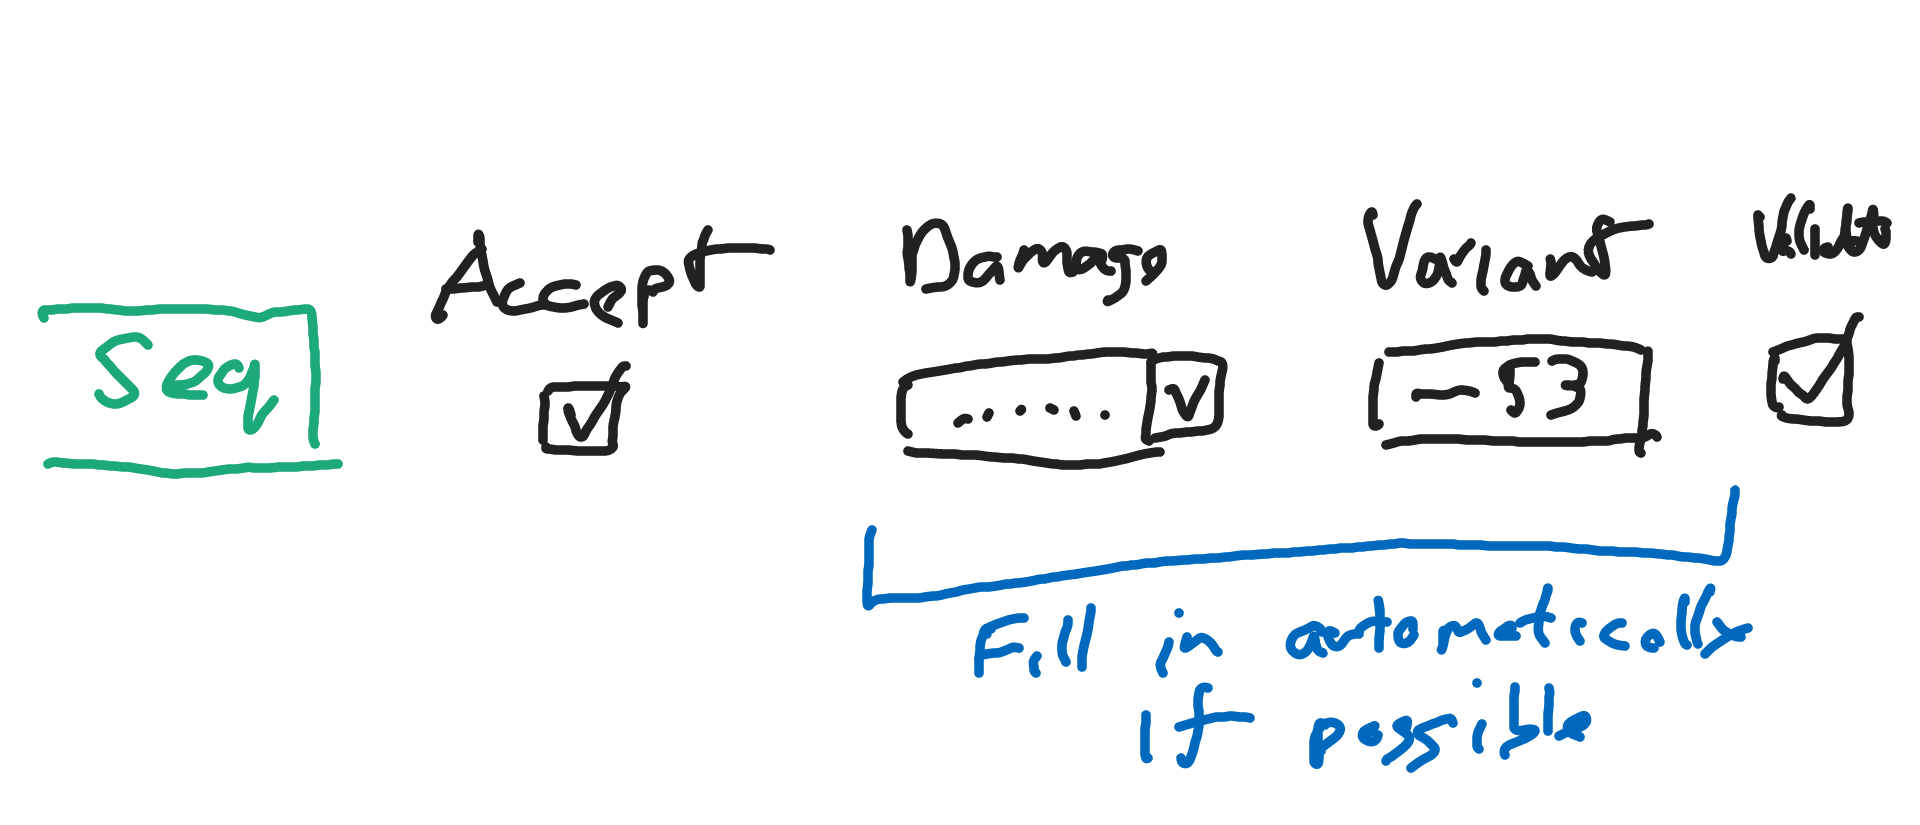 Accept Damage Variant
Seq
-53
Fill in automatically
If possible